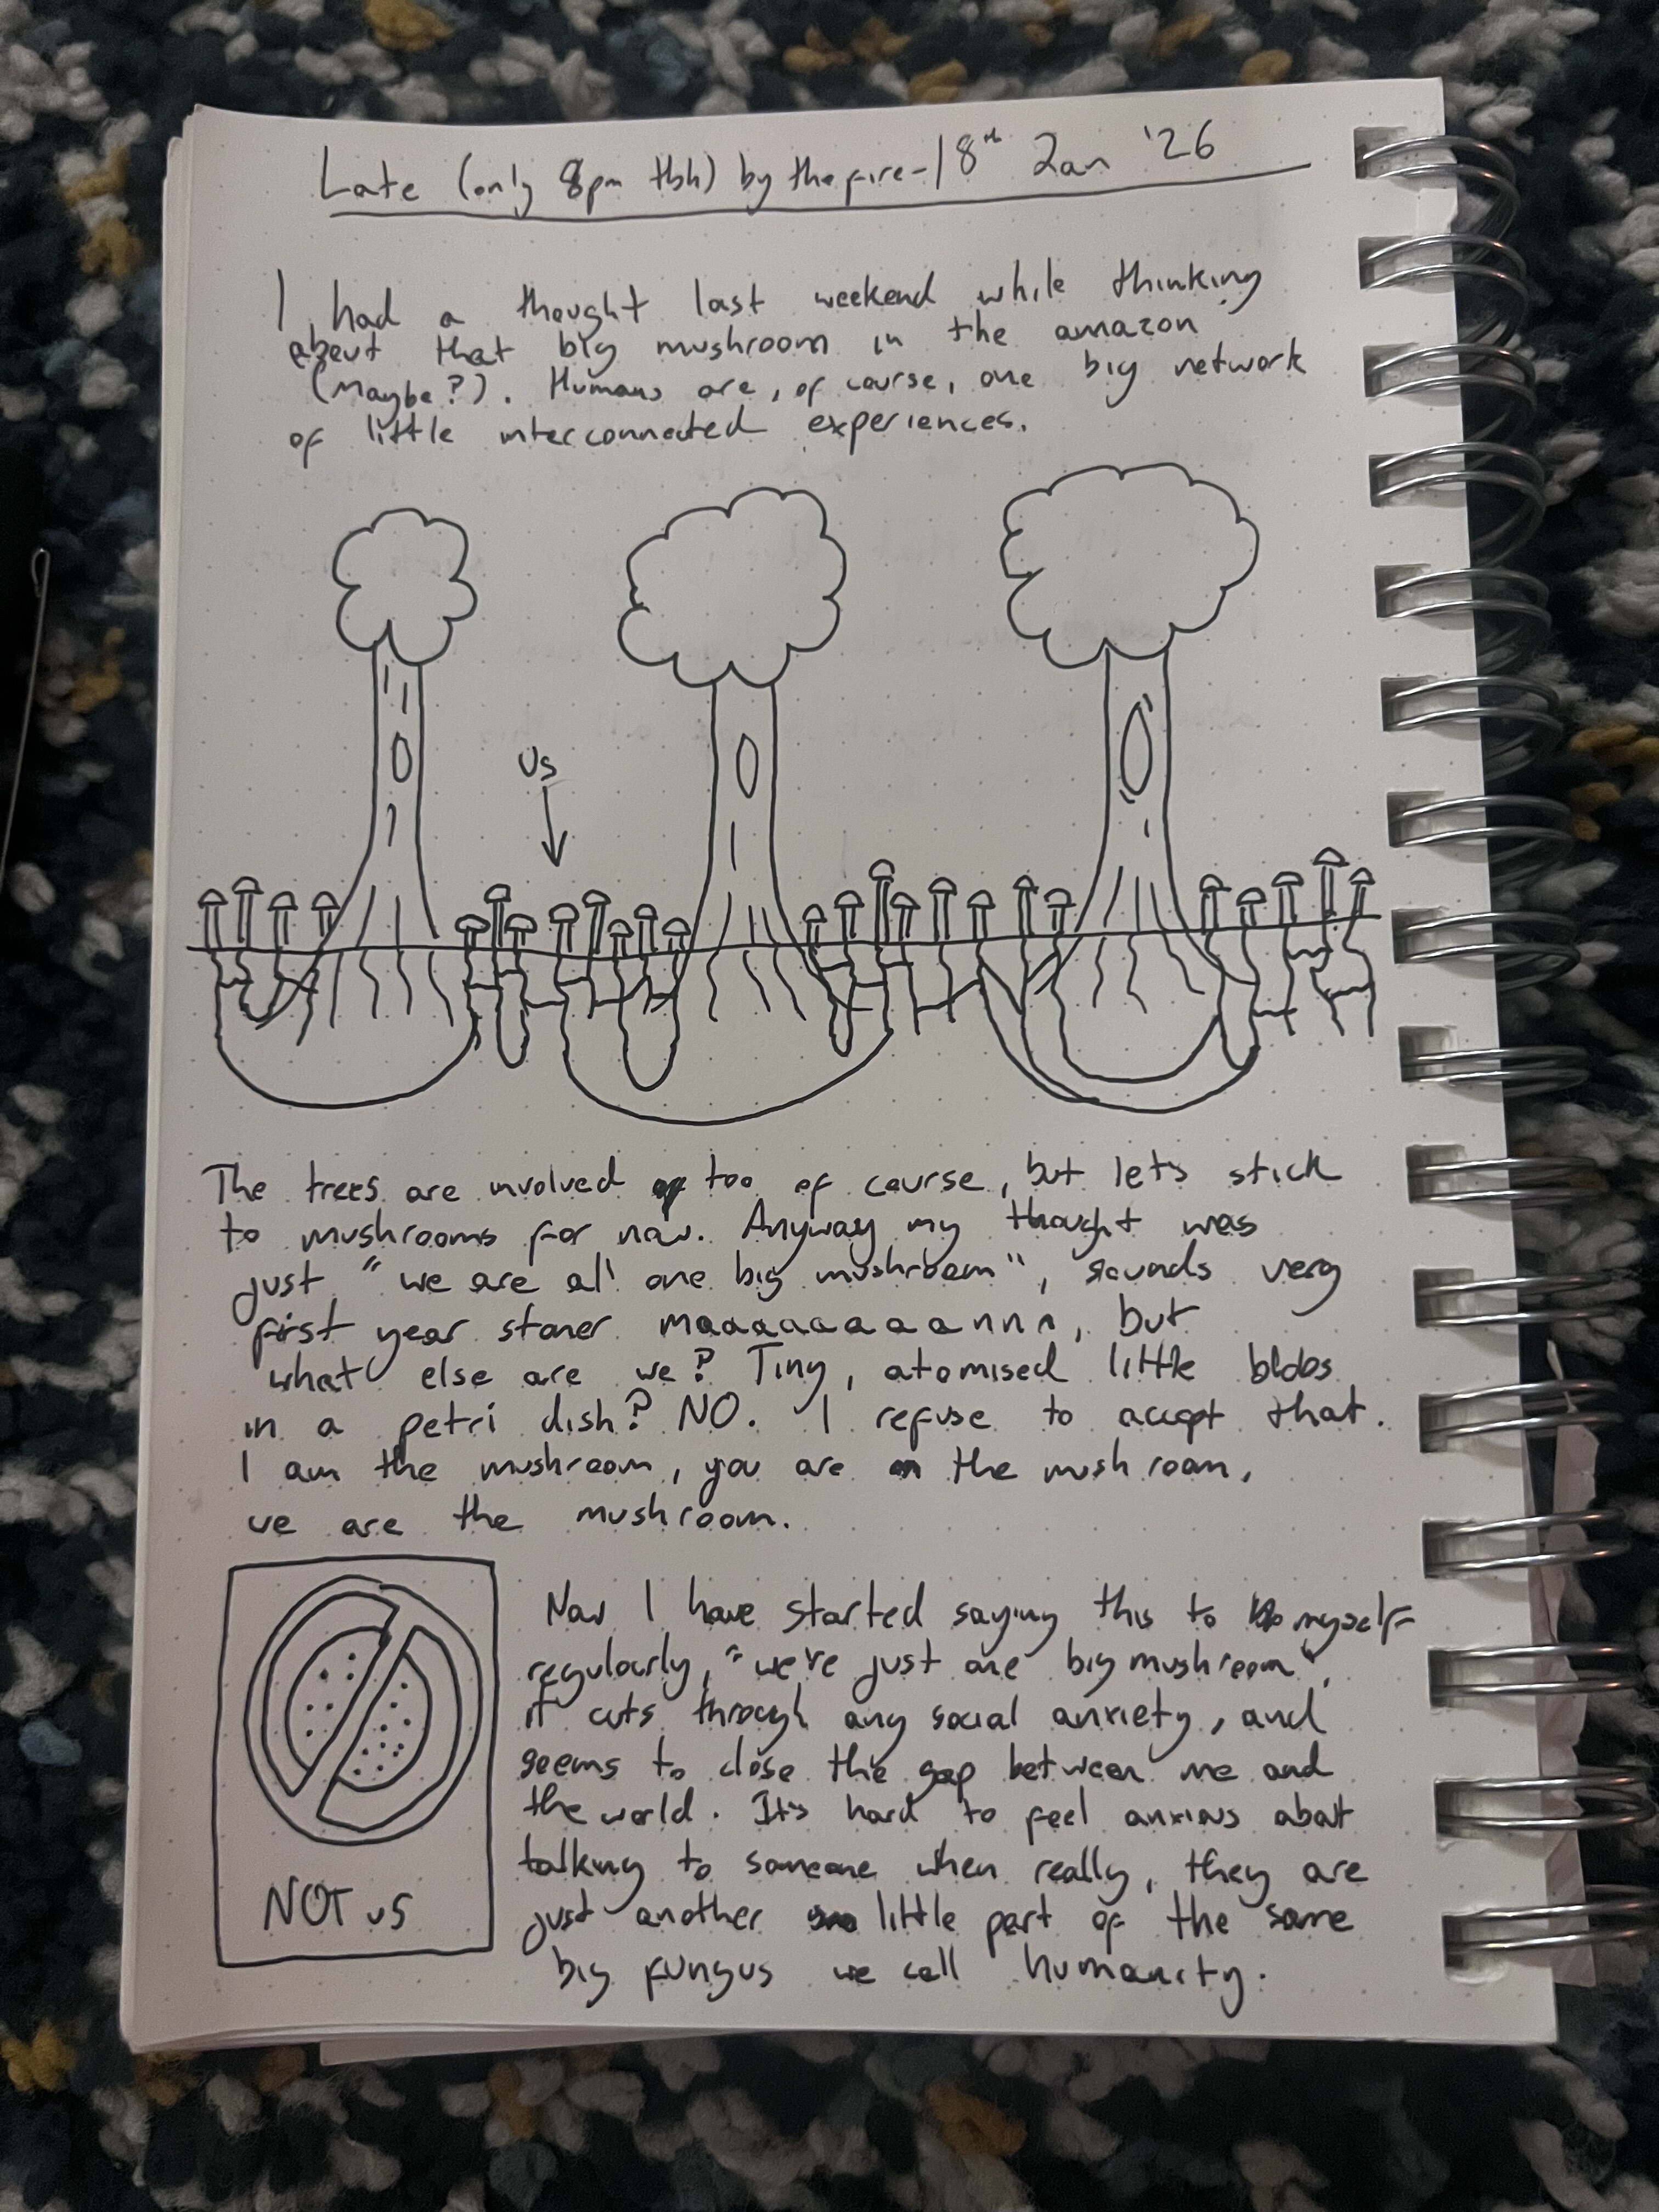 Late (only 8pm tbh) by the fire - 18th Jan '26
I had a thought last weekend while thinking
about that big mushroom in the amazon
(maybe?). Humans are, of course, one big network
of little interconnected experiences.
Us
The trees are involved too of course, but lets stick
to mushrooms for now. Anyway my thought was
just "we are all one big mushroom", sounds very
first year stoner maaaaaaaannn, but
what else are we? Tiny, atomised little blobs
in a petri dish? NO. I refuse to accept that.
I am the mushroom, you are the mushroom,
we are the mushroom.
Now I have started saying this to myself
regularly, "we're just one big mushroom",
it cuts through any social anxiety, and
seems to close the gap between me and
the world. It's hard to feel anxious about
talking to someone when really, they are
just another little part of the same
big fungus we call humanity.
NOT us